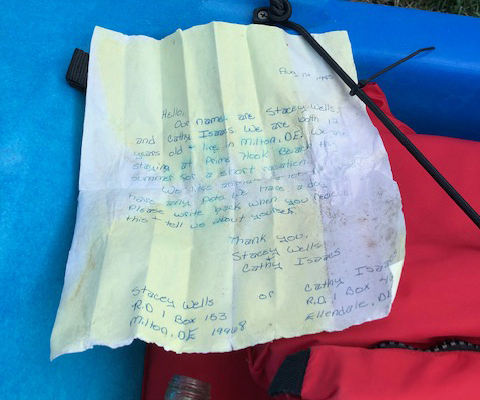 Aug 14
Hello,
Our names are Stacey Wells
and Cathy Isaacs We are both 12
years old + live in Milton, DE, We are
staying at Prime Hook Beach
summer for a short vacation
We like
have any pets we have a dog
Please write back when you
this + tell us about yourself.
Thank you,
Stacey Wells
Cathy Isaacs
Stacey Wells or Cathy Isaacs
R.D. 1 Box 153 R.D. 1 Box
Milton, DE 19968 Ellendale, DE